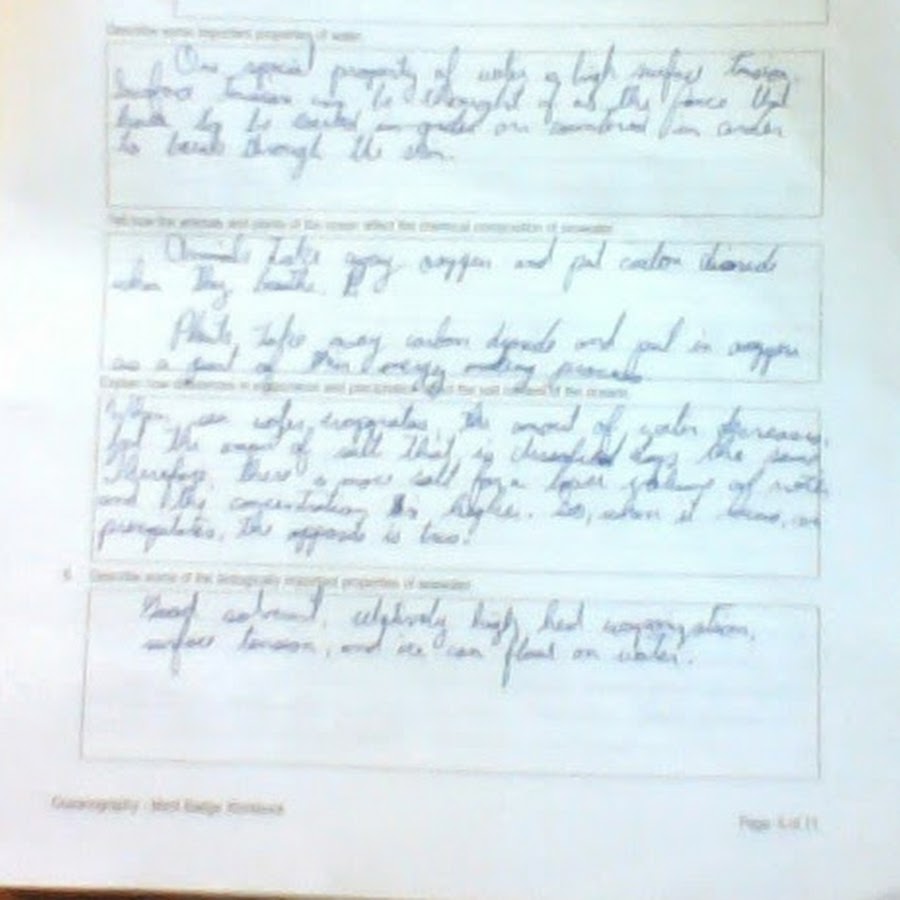 Describe some important properties of water.
One special property of water is high surface tension.
Surface tension may be thought of as the force that
to be exerted in order
to break through the skin.
Tell how the animals and plants of the ocean affect the chemical composition of seawater.
Animals take away oxygen and put carbon dioxide
when they breathe.
Plants take away carbon dioxide and put in oxygen
as a part of their energy making process.
Explain how differences in evaporation and precipitation affect the salt content of the oceans.
When water evaporates, the amount of water decreases,
but the amount of salt that is dissolved stays the same.
Therefore, there is more salt for a lower volume of water
and the concentration is higher. So, when it
precipitates, the opposite is true.
6. Describe some of the biologically important properties of seawater.
Good solvent, relatively high heat vaporization,
surface tension, and ice can float on water.
Oceanography - Merit Badge Workbook
Page 6 of 11